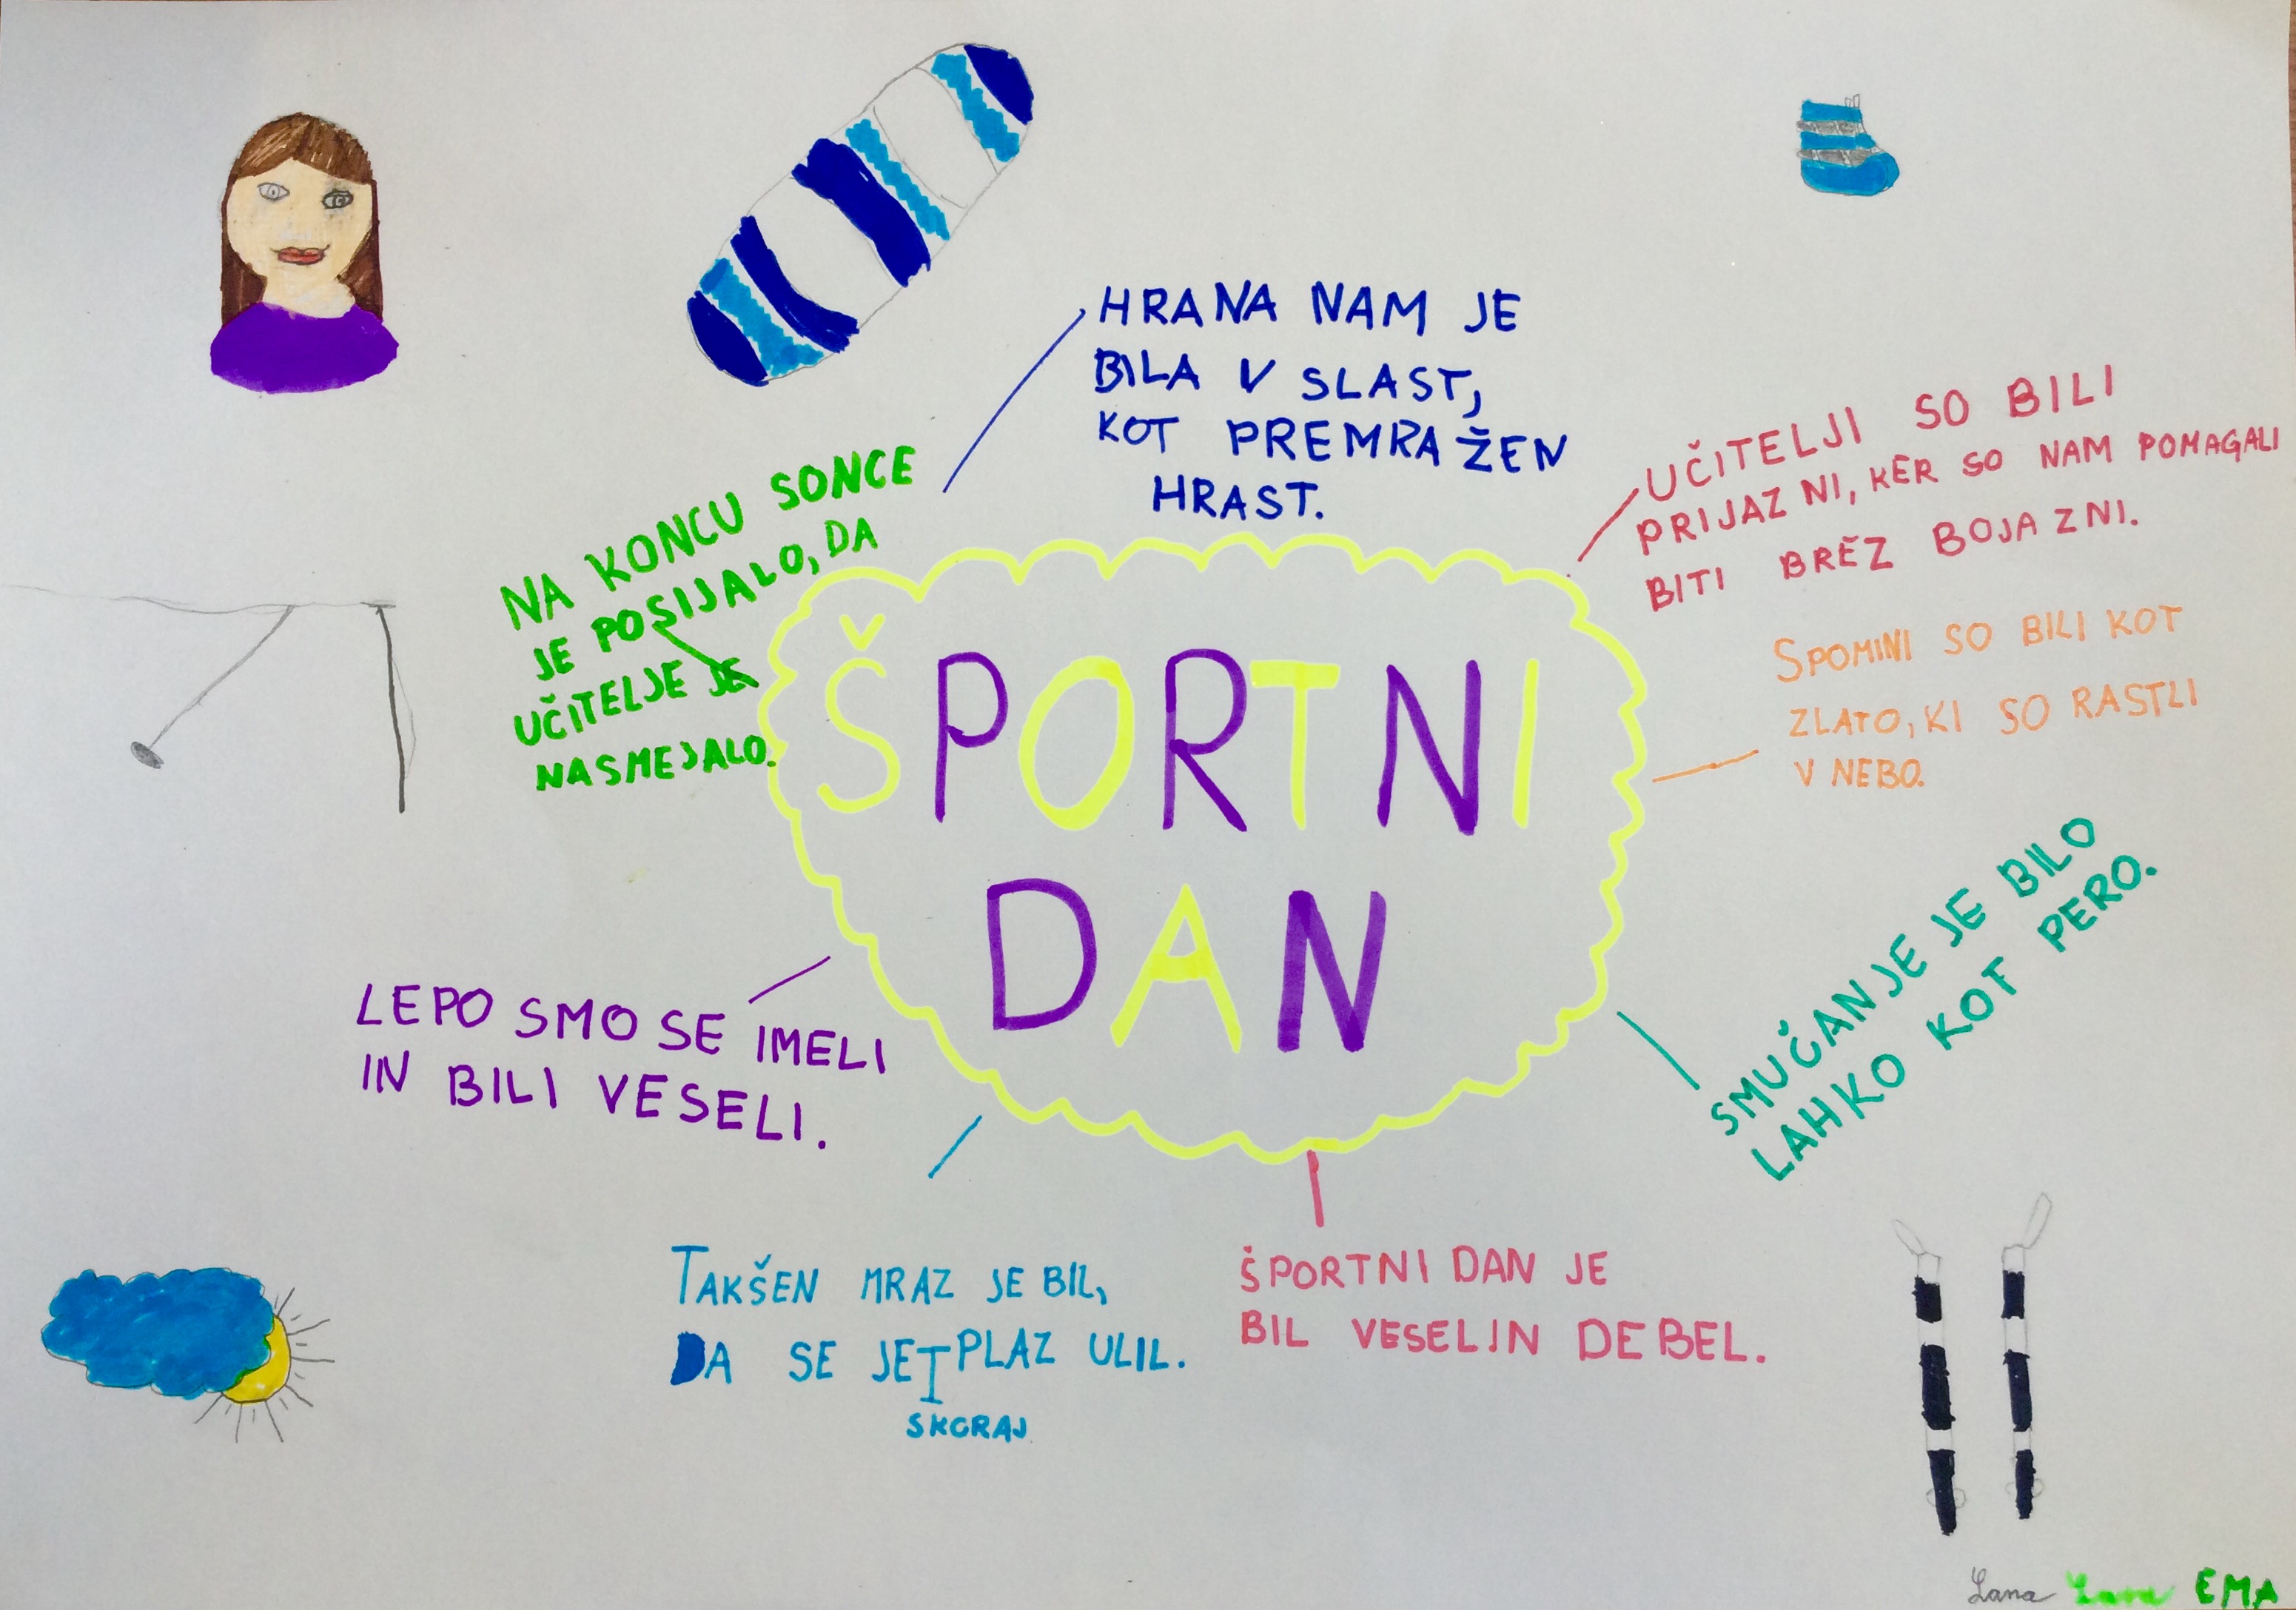 HRANA NAM JE
BILA V SLAST,
KOT PREMRAŽEN
HRAST.
UČITELJI SO BILI
PRIJAZNI, KER SO NAM POMAGALI
BITI BREZ BOJAZNI.
NA KONCU SONCE
JE POSIJALO, DA
UČITELJE JE
NASMEJALO.
ŠPORTNI
DAN
SPOMINI SO BILI KOT
ZLATO, KI SO RASTLI
V NEBO.
SMUČANJE JE BILO
LAHKO KOT PERO.
LEPO SMO SE IMELI
IN BILI VESELI.
TAKŠEN MRAZ JE BIL,
DA SE JE PLAZ ULIL.
SKORAJ
ŠPORTNI DAN JE
BIL VESEL IN DEBEL.
Lana EMA